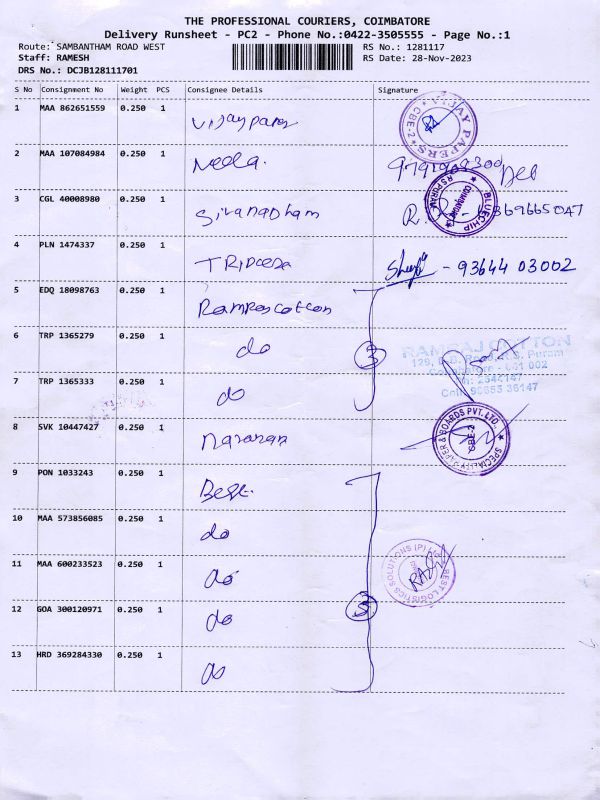 THE PROFESSIONAL COURIERS, COIMBATORE
Delivery Runsheet - PC2 - Phone No.:0422-3505555 - Page No.:1
Route: SAMBANTHAM ROAD WEST RS No.: 1281117
Staff: RAMESH RS Date: 28-Nov-2023
DRS No.: DCJB128111701
S No Consignment No Weight PCS Consignee Details Signature
1 MAA 862651559 0.250 1 Vijay papers VIJAY PAPERS ★ CBE-2 ★
2 MAA 107084984 0.250 1 Neela.
3 CGL 40008980 0.250 1 Sivanandham BLUECHIP COIMBATORE R S PURAM
4 PLN 1474337 0.250 1 - 93644 03002
5 EDQ 18098763 0.250 1 Ramrascotton
6 TRP 1365279 0.250 1 do 3 RAMRAJ COTTON
R.S. Puram
Coimbatore - 641 002
7 TRP 1365333 0.250 1 do
8 SVK 10447427 0.250 1 Naranan PAPER & BOARDS PVT. LTD., CBE-2
9 PON 1033243 0.250 1 Best.
10 MAA 573856085 0.250 1 do
11 MAA 600233523 0.250 1 do BEST LOGISTICS SOLUTIONS (P) LTD
12 GOA 300120971 0.250 1 do 5
13 HRD 369284330 0.250 1 do